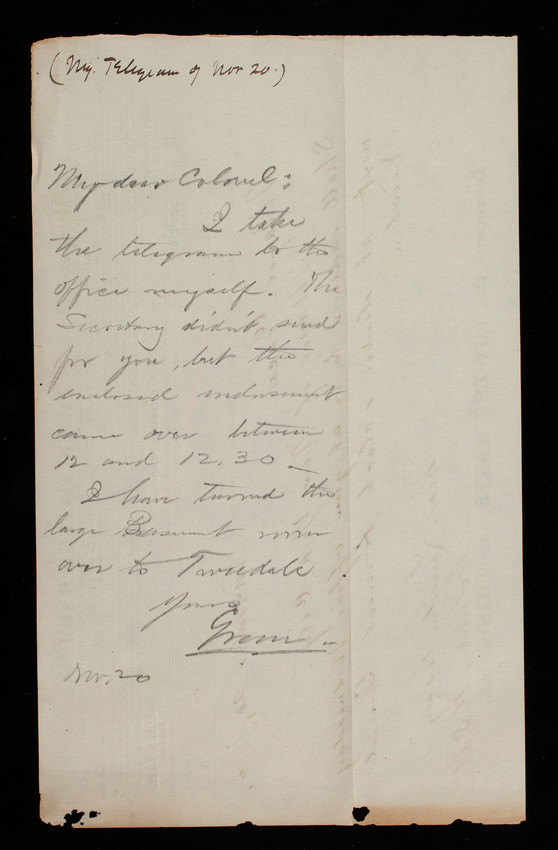 (My. Telegram of Nov 20.)
My dear Colonel:
I take
the telegram to the
office myself. The
Secretary didn't send
for you, but the
enclosed indorsement
came over between
12 and 12.30 —
I have turned the
large Basement room
over to Tweedale.
Yours
Green —
Nov. 20